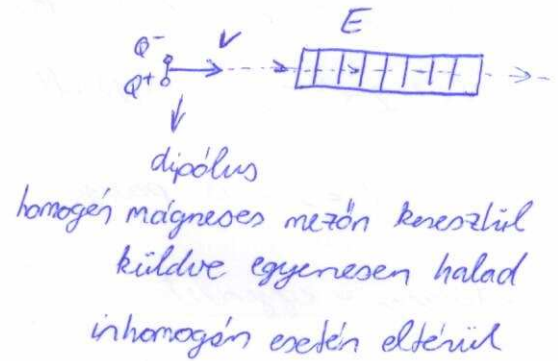 E
Q⁻ v
Q⁺
dipólus
homogén mágneses mezőn keresztül
küldve egyenesen halad
inhomogén esetén eltérül